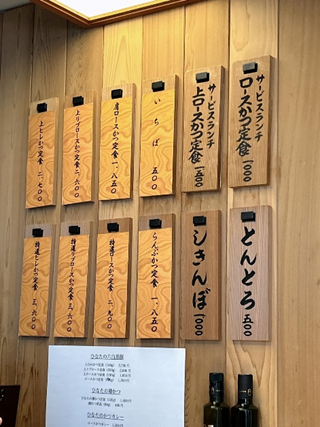 サービスランチ
ロースかつ定食 一,〇〇〇
サービスランチ
上ロースかつ定食 一,五〇〇
いちぼ 五〇〇
肩ロースかつ定食 一、八五〇
上リブロースかつ定食 二、六〇〇
上ヒレかつ定食 二、七〇〇
とんとろ 五〇〇
しきんぼ 一,〇〇〇
らんぷかつ定食 一、八五〇
特選ロースかつ定食 二、九〇〇
特選リブロースかつ定食 三、六〇〇
特選ヒレかつ定食 三、六〇〇
ひなたの六白黒豚
ひなたの帯かつ
ひなたのかつカレー